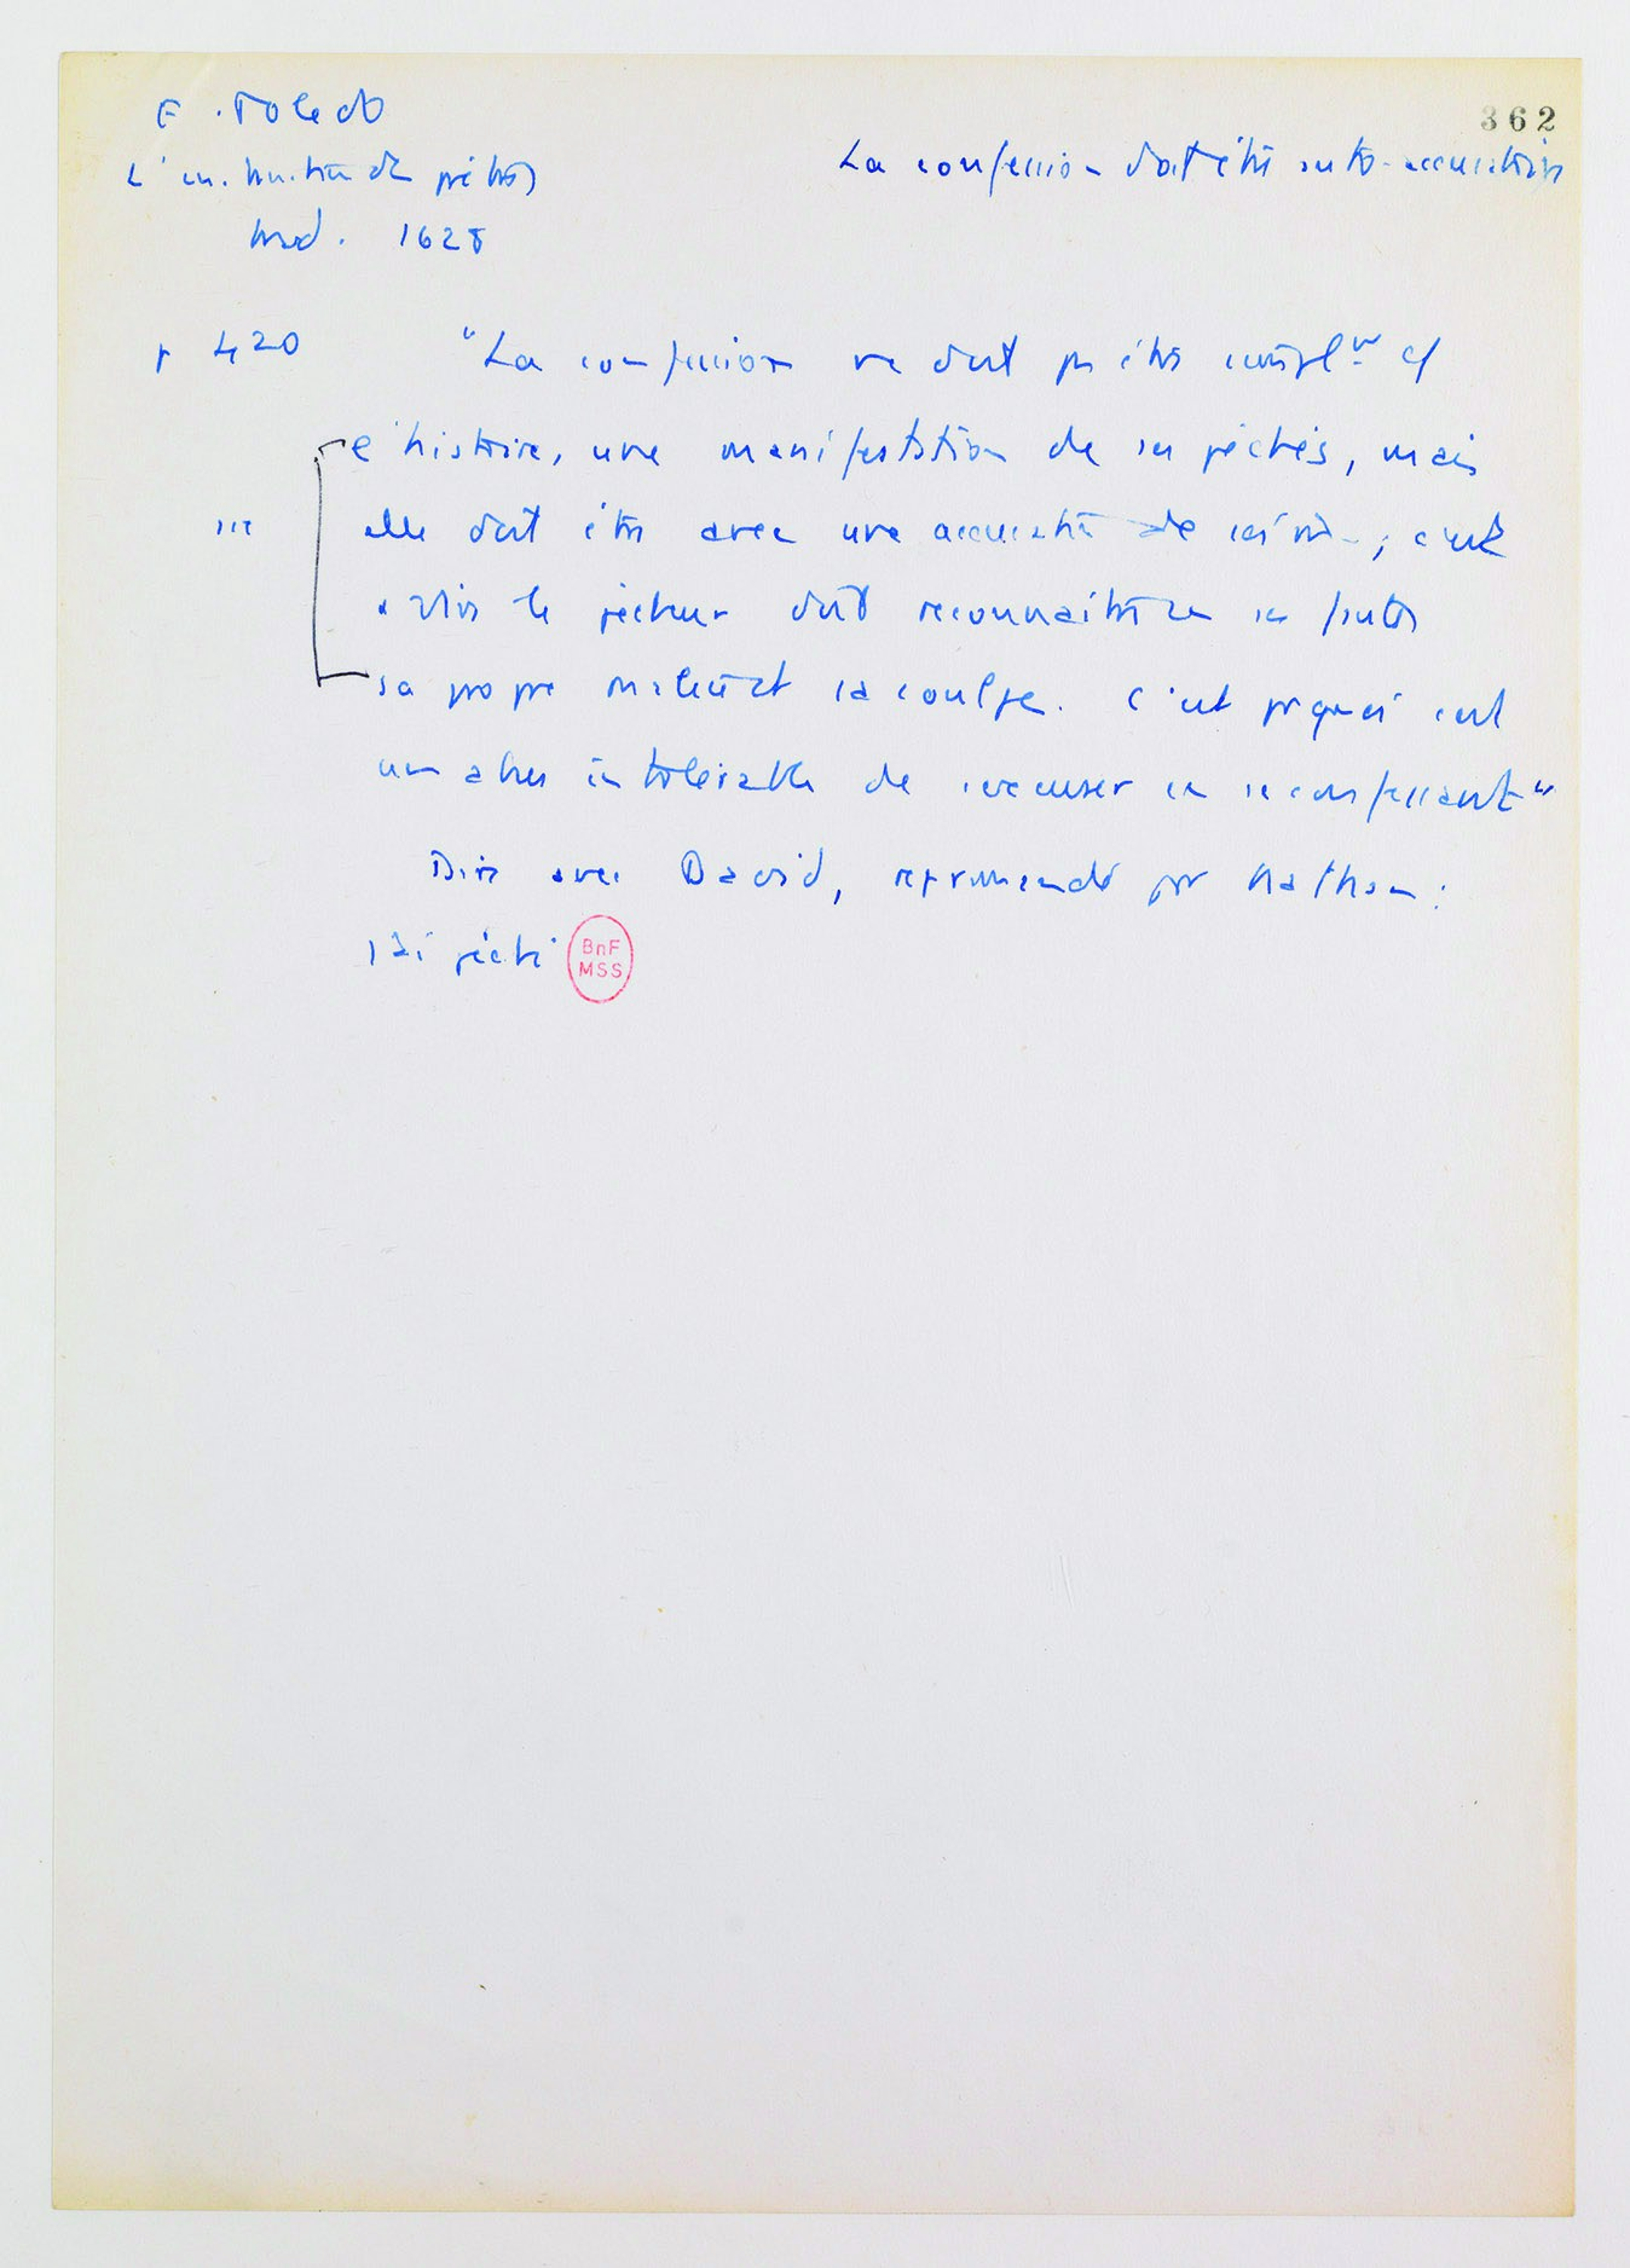 F. Toledo
362
L'instruction des prêtres
La confession doit être auto-accusatoire
trad. 1628
p 420 "La confession ne doit pas être simplt
l'histoire, une manifestation de ses péchés, mais
elle doit être avec une accusation de soi même; c'est
à dire le pécheur doit reconnaître ses fautes
sa propre malice et sa coulpe. C'est pquoi c'est
un abus intolérable de s'excuser en se confessant"
Dire avec David, réprimandé par Nathan :
j'ai péché
BnF
MSS